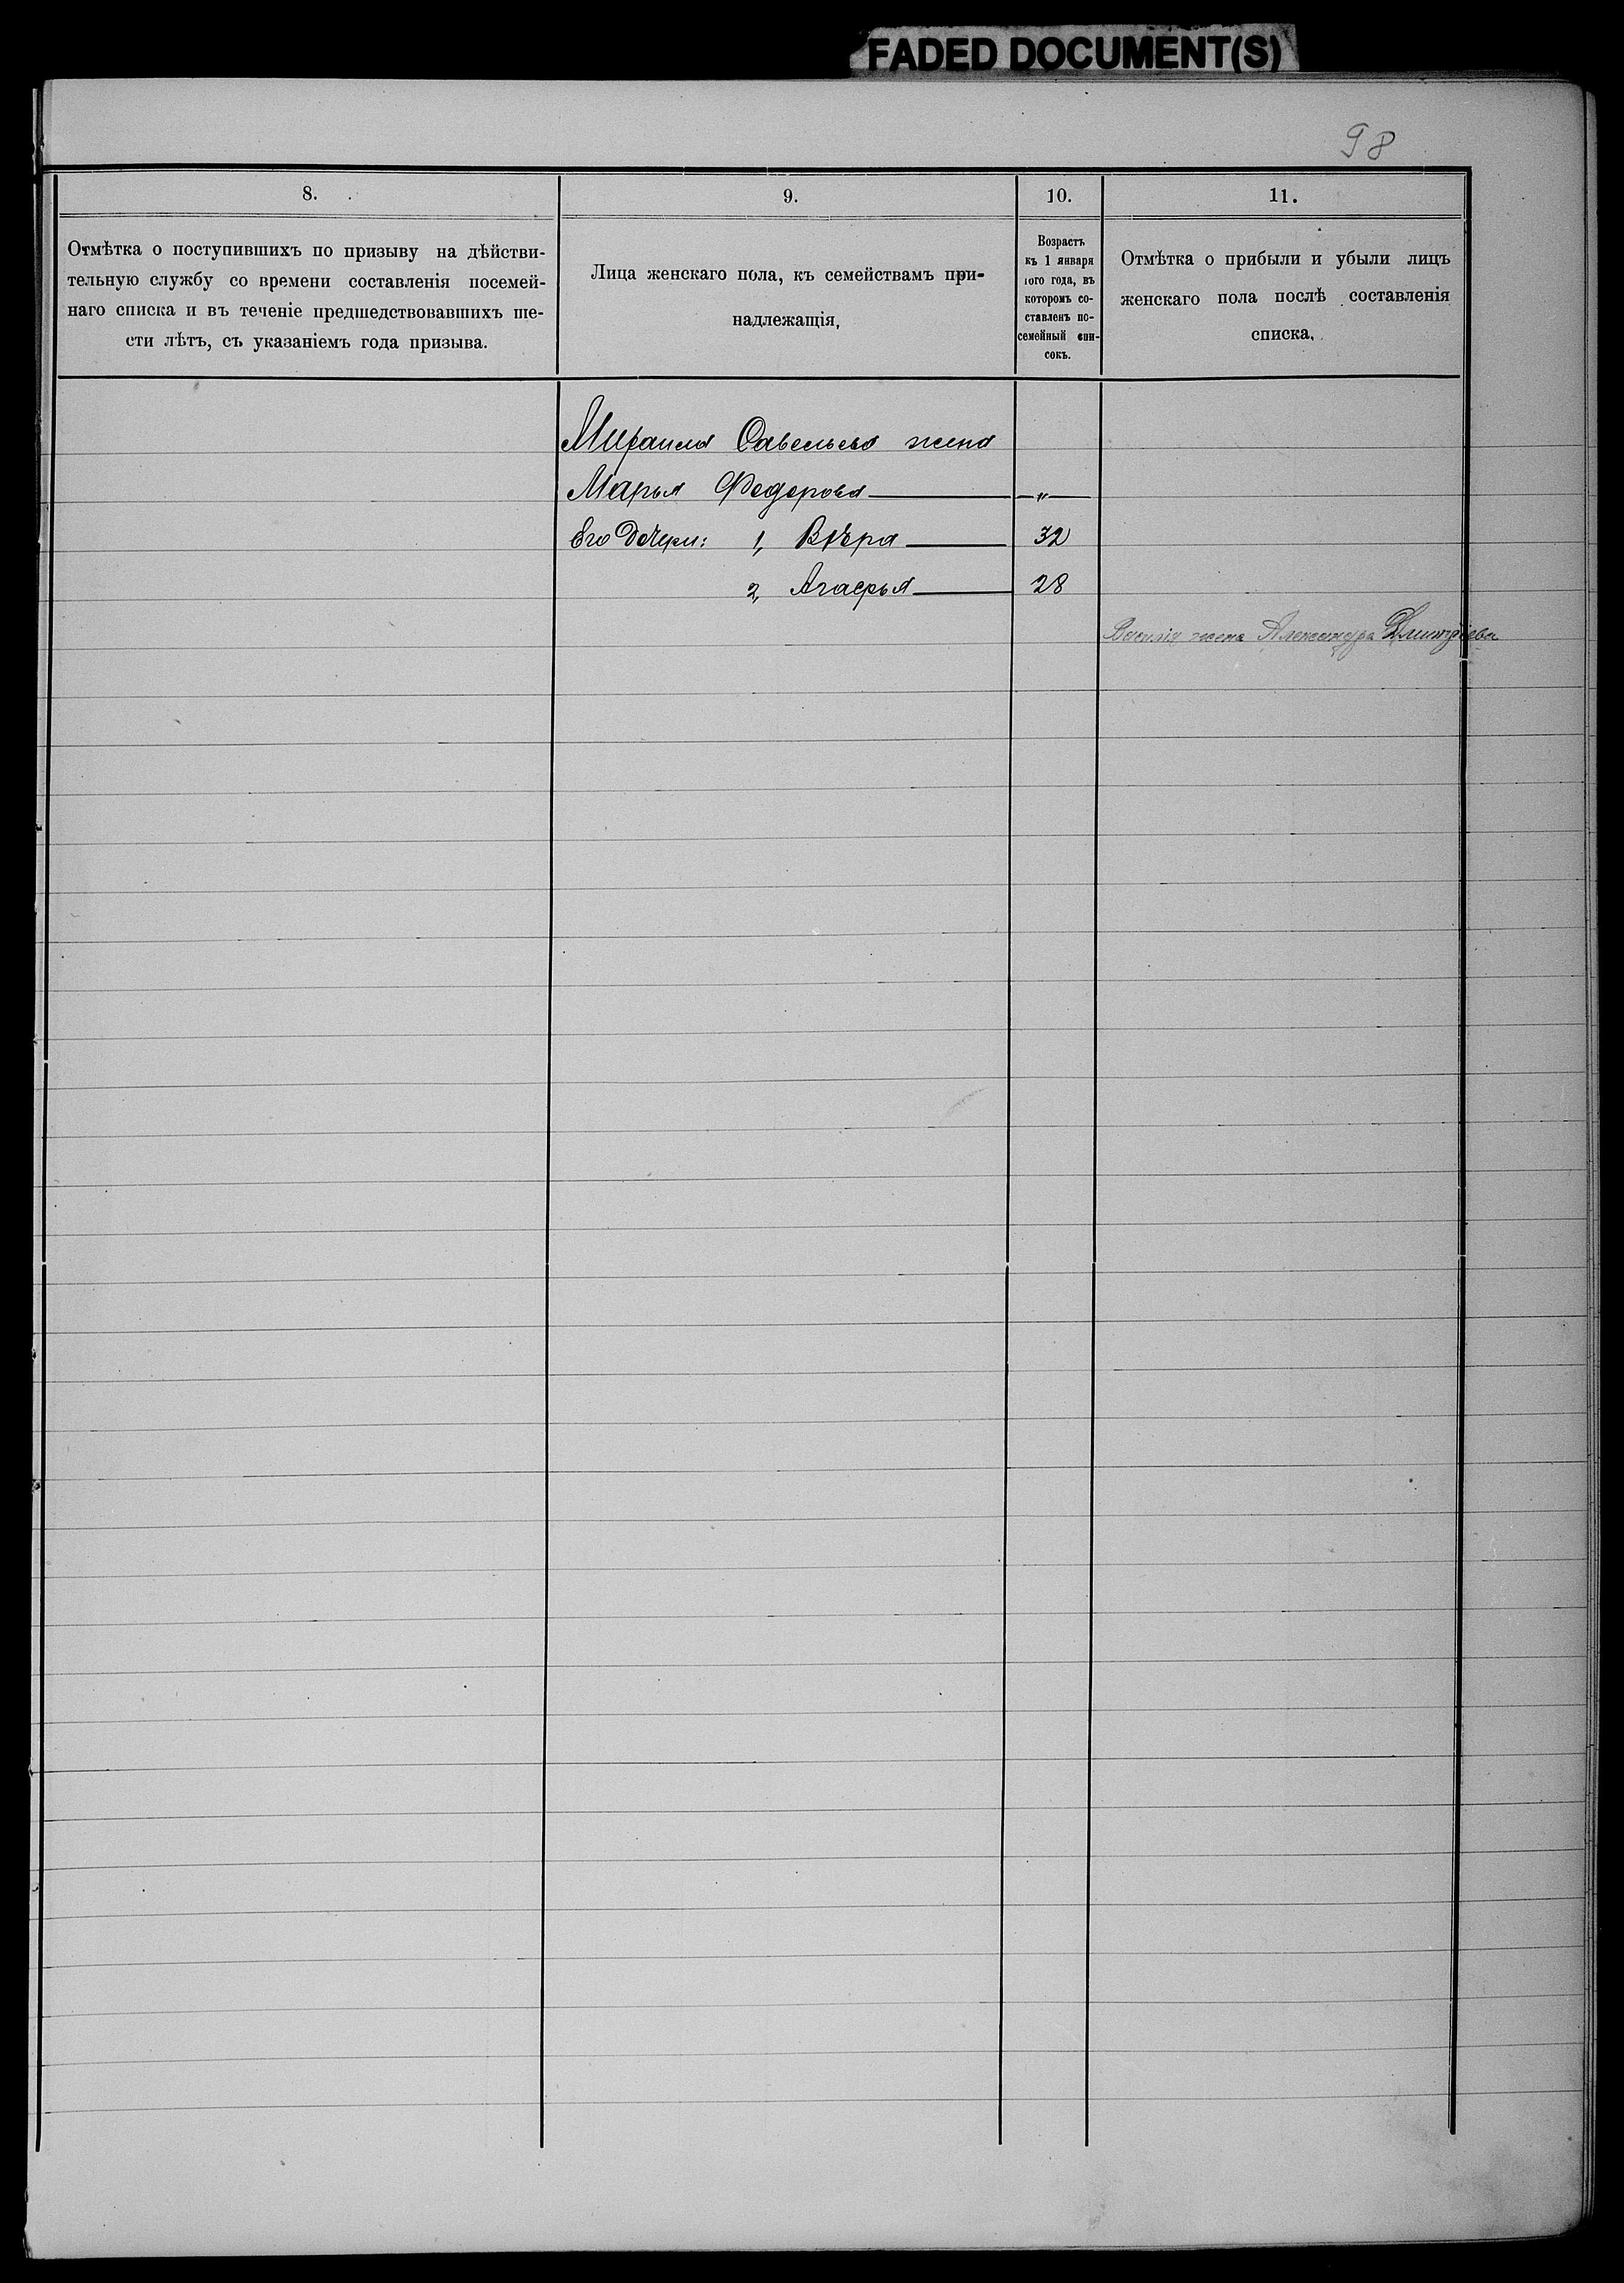 FADED DOCUMENT(S)
98
8.
9.
10.
11.
Отмѣтка о поступившихъ по призыву на дѣйстви-
тельную службу со времени составленія посемей-
наго списка и въ теченіе предшедствовавшихъ ше-
сти лѣтъ, съ указаніемъ года призыва.
Лица женскаго пола, къ семействамъ при-
надлежащія,
Возрастъ
къ 1 января
того года, въ
которомъ со-
ставленъ по-
семейный спи-
сокъ.
Отмѣтка о прибыли и убыли лицъ
женскаго пола послѣ составленія
списка.
Михаила Савельева жена
Марья Федорова — „ —
Его дочери: 1, Вѣра — 32
2, Агафья — 28
Василія жена Александра Дмитріева